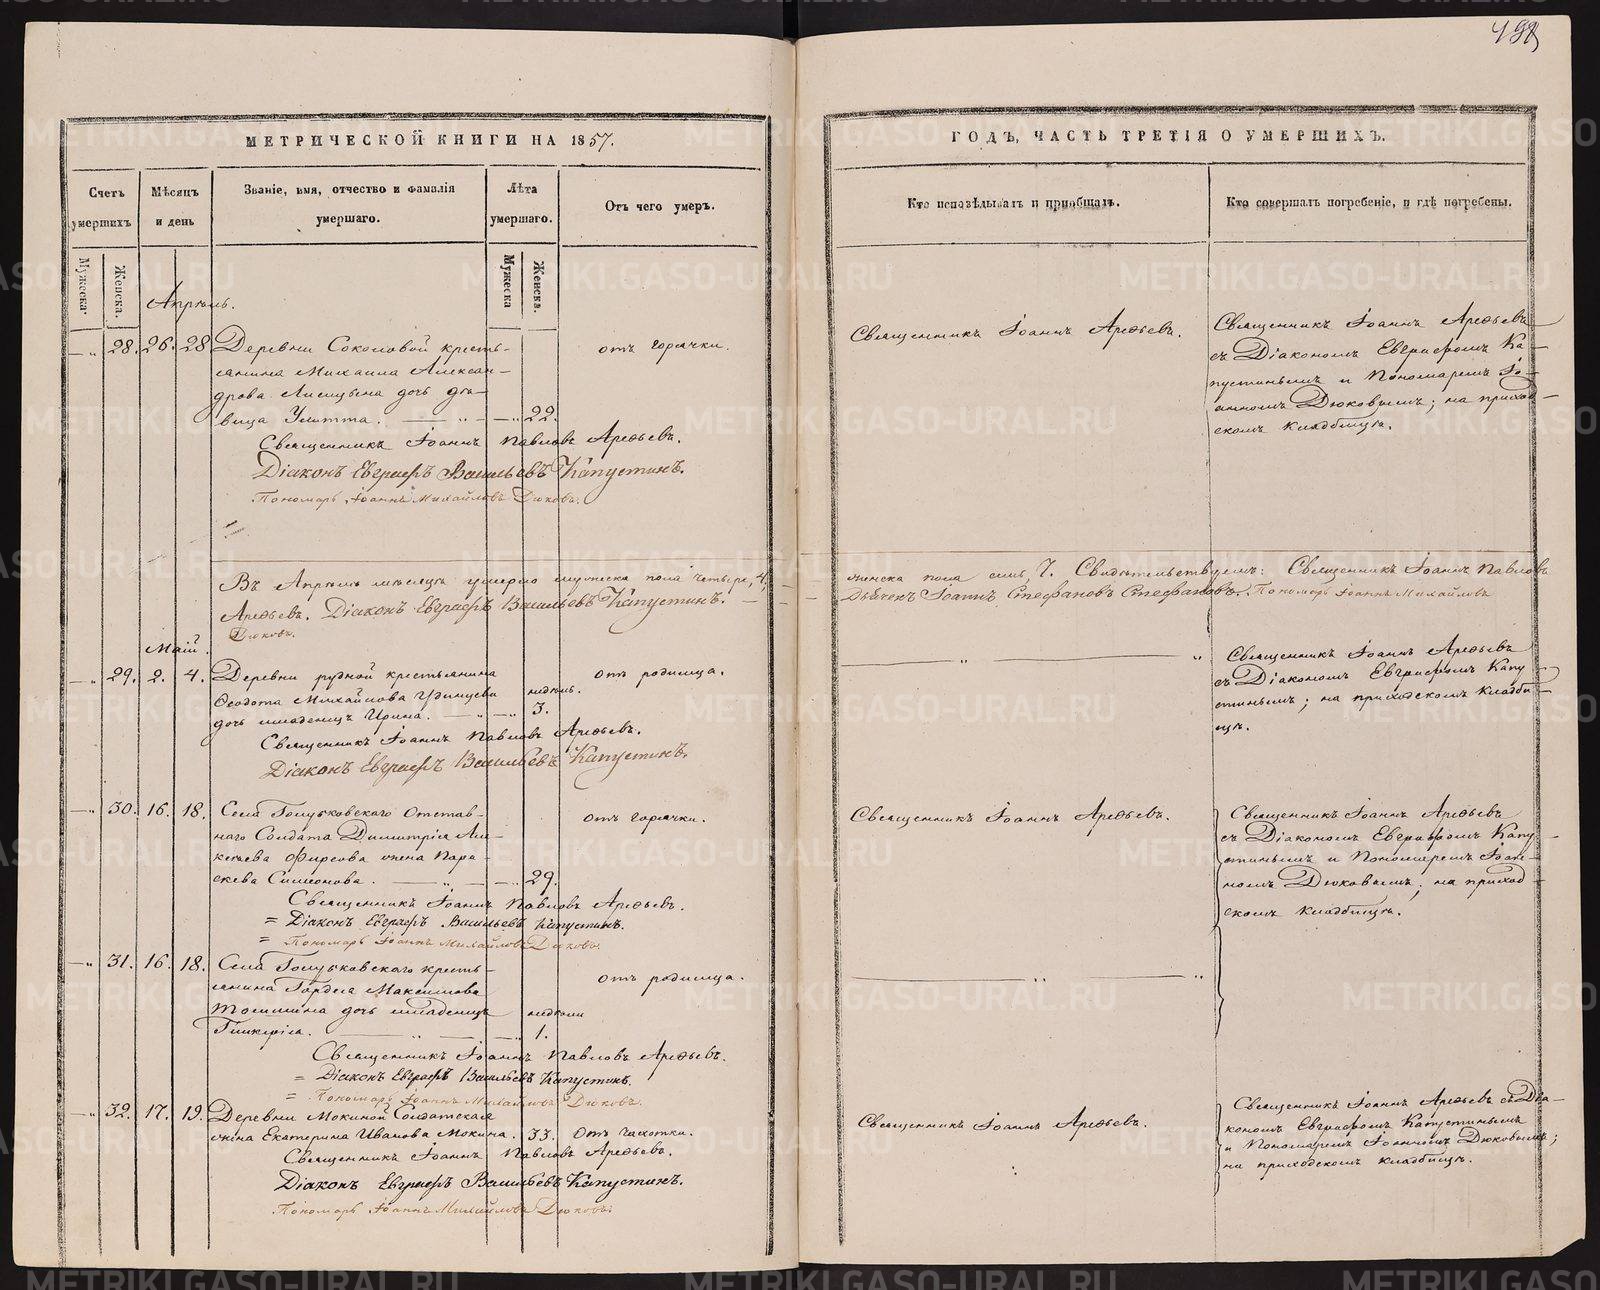 МЕТРИЧЕСКОЙ КНИГИ НА 1857.
Счетъ умершихъ
Мѣсяцъ и день
Званіе, имя, отчество и фамилія умершаго.
Лѣта умершаго.
Отъ чего умеръ.
Мужеска.
Женска.
Мужеска
Женска.
Апрѣль.
28. 26. 28 Деревни Соколовой кресть-
янина Михаила Алексан-
дрова дочь дѣ-
вица Улитта. 22.
отъ горячки.
Священникъ Іоаннъ Павловъ Арефьевъ.
Діаконъ Евграфъ Васильевъ Капустинъ.
Пономарь Іоаннъ Михайловъ Дюковъ.
Въ Апрѣлѣ мѣсяцѣ умерло мужеска пола четыре, 4,
Арефьевъ. Діаконъ Евграфъ Васильевъ Капустинъ.
Дюковъ.
Маій.
29. 2. 4. Деревни рудной крестьянина
Ѳеодота Михайлова Удинцева
дочь младенецъ Ирина.
недѣль.
3.
отъ родимца.
Священникъ Іоаннъ Павловъ Арефьевъ.
Діаконъ Евграфъ Васильевъ Капустинъ.
30. 16. 18. Села Голубковскаго Отстав-
наго Солдата Димитрія Але-
ксѣева Фирсова жена Пара-
скева Симеонова. 29.
отъ горячки.
Священникъ Іоаннъ Павловъ Арефьевъ.
= Діаконъ Евграфъ Васильевъ Капустинъ.
= Пономарь Іоаннъ Михайловъ Дюковъ.
31. 16. 18. Села Голубковскаго кресть-
янина Гордея Максимова
дочь младенецъ
Гликерія. 1.
недѣли
отъ родимца.
Священникъ Іоаннъ Павловъ Арефьевъ.
= Діаконъ Евграфъ Васильевъ Капустинъ.
= Пономарь Іоаннъ Михайловъ Дюковъ.
32. 17. 19. Деревни Мокиной Солдатская
жена Екатерина Иванова Мокина. 33. Отъ чахотки.
Священникъ Іоаннъ Павловъ Арефьевъ.
Діаконъ Евграфъ Васильевъ Капустинъ.
Пономарь Іоаннъ Михайловъ Дюковъ.
ГОДЪ, ЧАСТЬ ТРЕТІЯ О УМЕРШИХЪ.
Кто исповѣдывалъ и пріобщалъ.
Кто совершалъ погребеніе, и гдѣ погребены.
Священникъ Іоаннъ Арефьевъ.
Священникъ Іоаннъ Арефьевъ
съ Діакономъ Евграфомъ Ка-
пустинымъ и Пономаремъ Іо-
анномъ Дюковымъ; на приход-
скомъ кладбищѣ.
женска пола семь, 7. Свидѣтельствуемъ: Священникъ Іоаннъ Павловъ
Дьячекъ Іоаннъ Стефановъ Стефановъ. Пономарь Іоаннъ Михайловъ
Священникъ Іоаннъ Арефьевъ
съ Діакономъ Евграфомъ Капу-
стинымъ; на приходскомъ кладби-
щѣ.
Священникъ Іоаннъ Арефьевъ.
Священникъ Іоаннъ Арефьевъ
съ Діакономъ Евграфомъ Капу-
стинымъ и Пономаремъ Іоан-
номъ Дюковымъ; на приход-
скомъ кладбищѣ.
Священникъ Іоаннъ Арефьевъ.
Священникъ Іоаннъ Арефьевъ съ Діа-
кономъ Евграфомъ Капустинымъ
и Пономаремъ Іоанномъ Дюковымъ;
на приходскомъ кладбищѣ.
METRIKI.GASO-URAL.RU